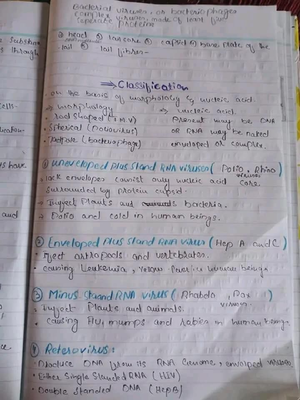 Bacterial viruses or bacteriophages
complex viruses made of
separate proteins
head tail core capsid base plate of the
tail tail fibres
⇒ Classification
on the basis of morphology & nucleic acid
⇒ morphology ⇒ nucleic acid
Rod shaped (T.M.V) Present may be DNA
Spherical (Poliovirus) or RNA may be naked
Tadpole (Bacteriophage) enveloped or complex.
① Unenveloped Plus Stand RNA viruses (Polio, Rhino
lack envelopes consist only nucleic acid core. viruses
Surrounded by protein capsid.
Infect Plants and bacteria.
Polio and cold in human beings.
② Enveloped Plus Stand RNA virus (Hep A and C)
Infect artropods and vertebrates.
causing Leukemia, fever in human beings
③ Minus Stand RNA virus (Rhabdo, Pox
Infect Plants and animals. viruses
causing Flu, mumps and rabies in human being.
④ Reterovirus:
Produce DNA from its RNA Genome, enveloped viruses
Either Single Standed RNA (HIV)
Double Standed DNA (HepB)
and